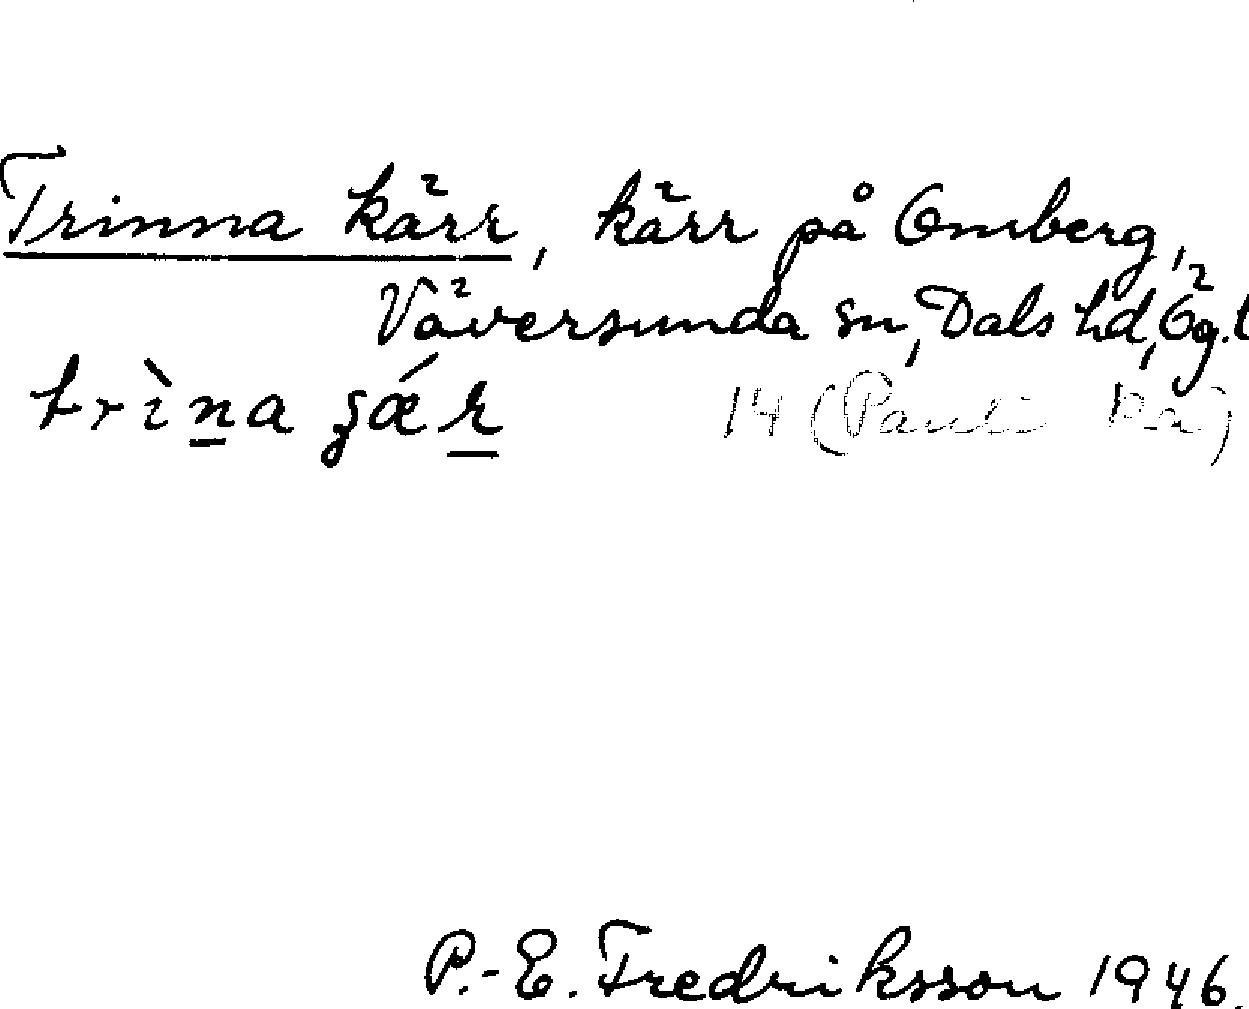 Trinna kärr, kärr på Omberg,
Väversunda sn, Dals hd, Ög.l
trìna ʂǽr
14 (Pauli ka)
P.-E. Fredriksson 1946.